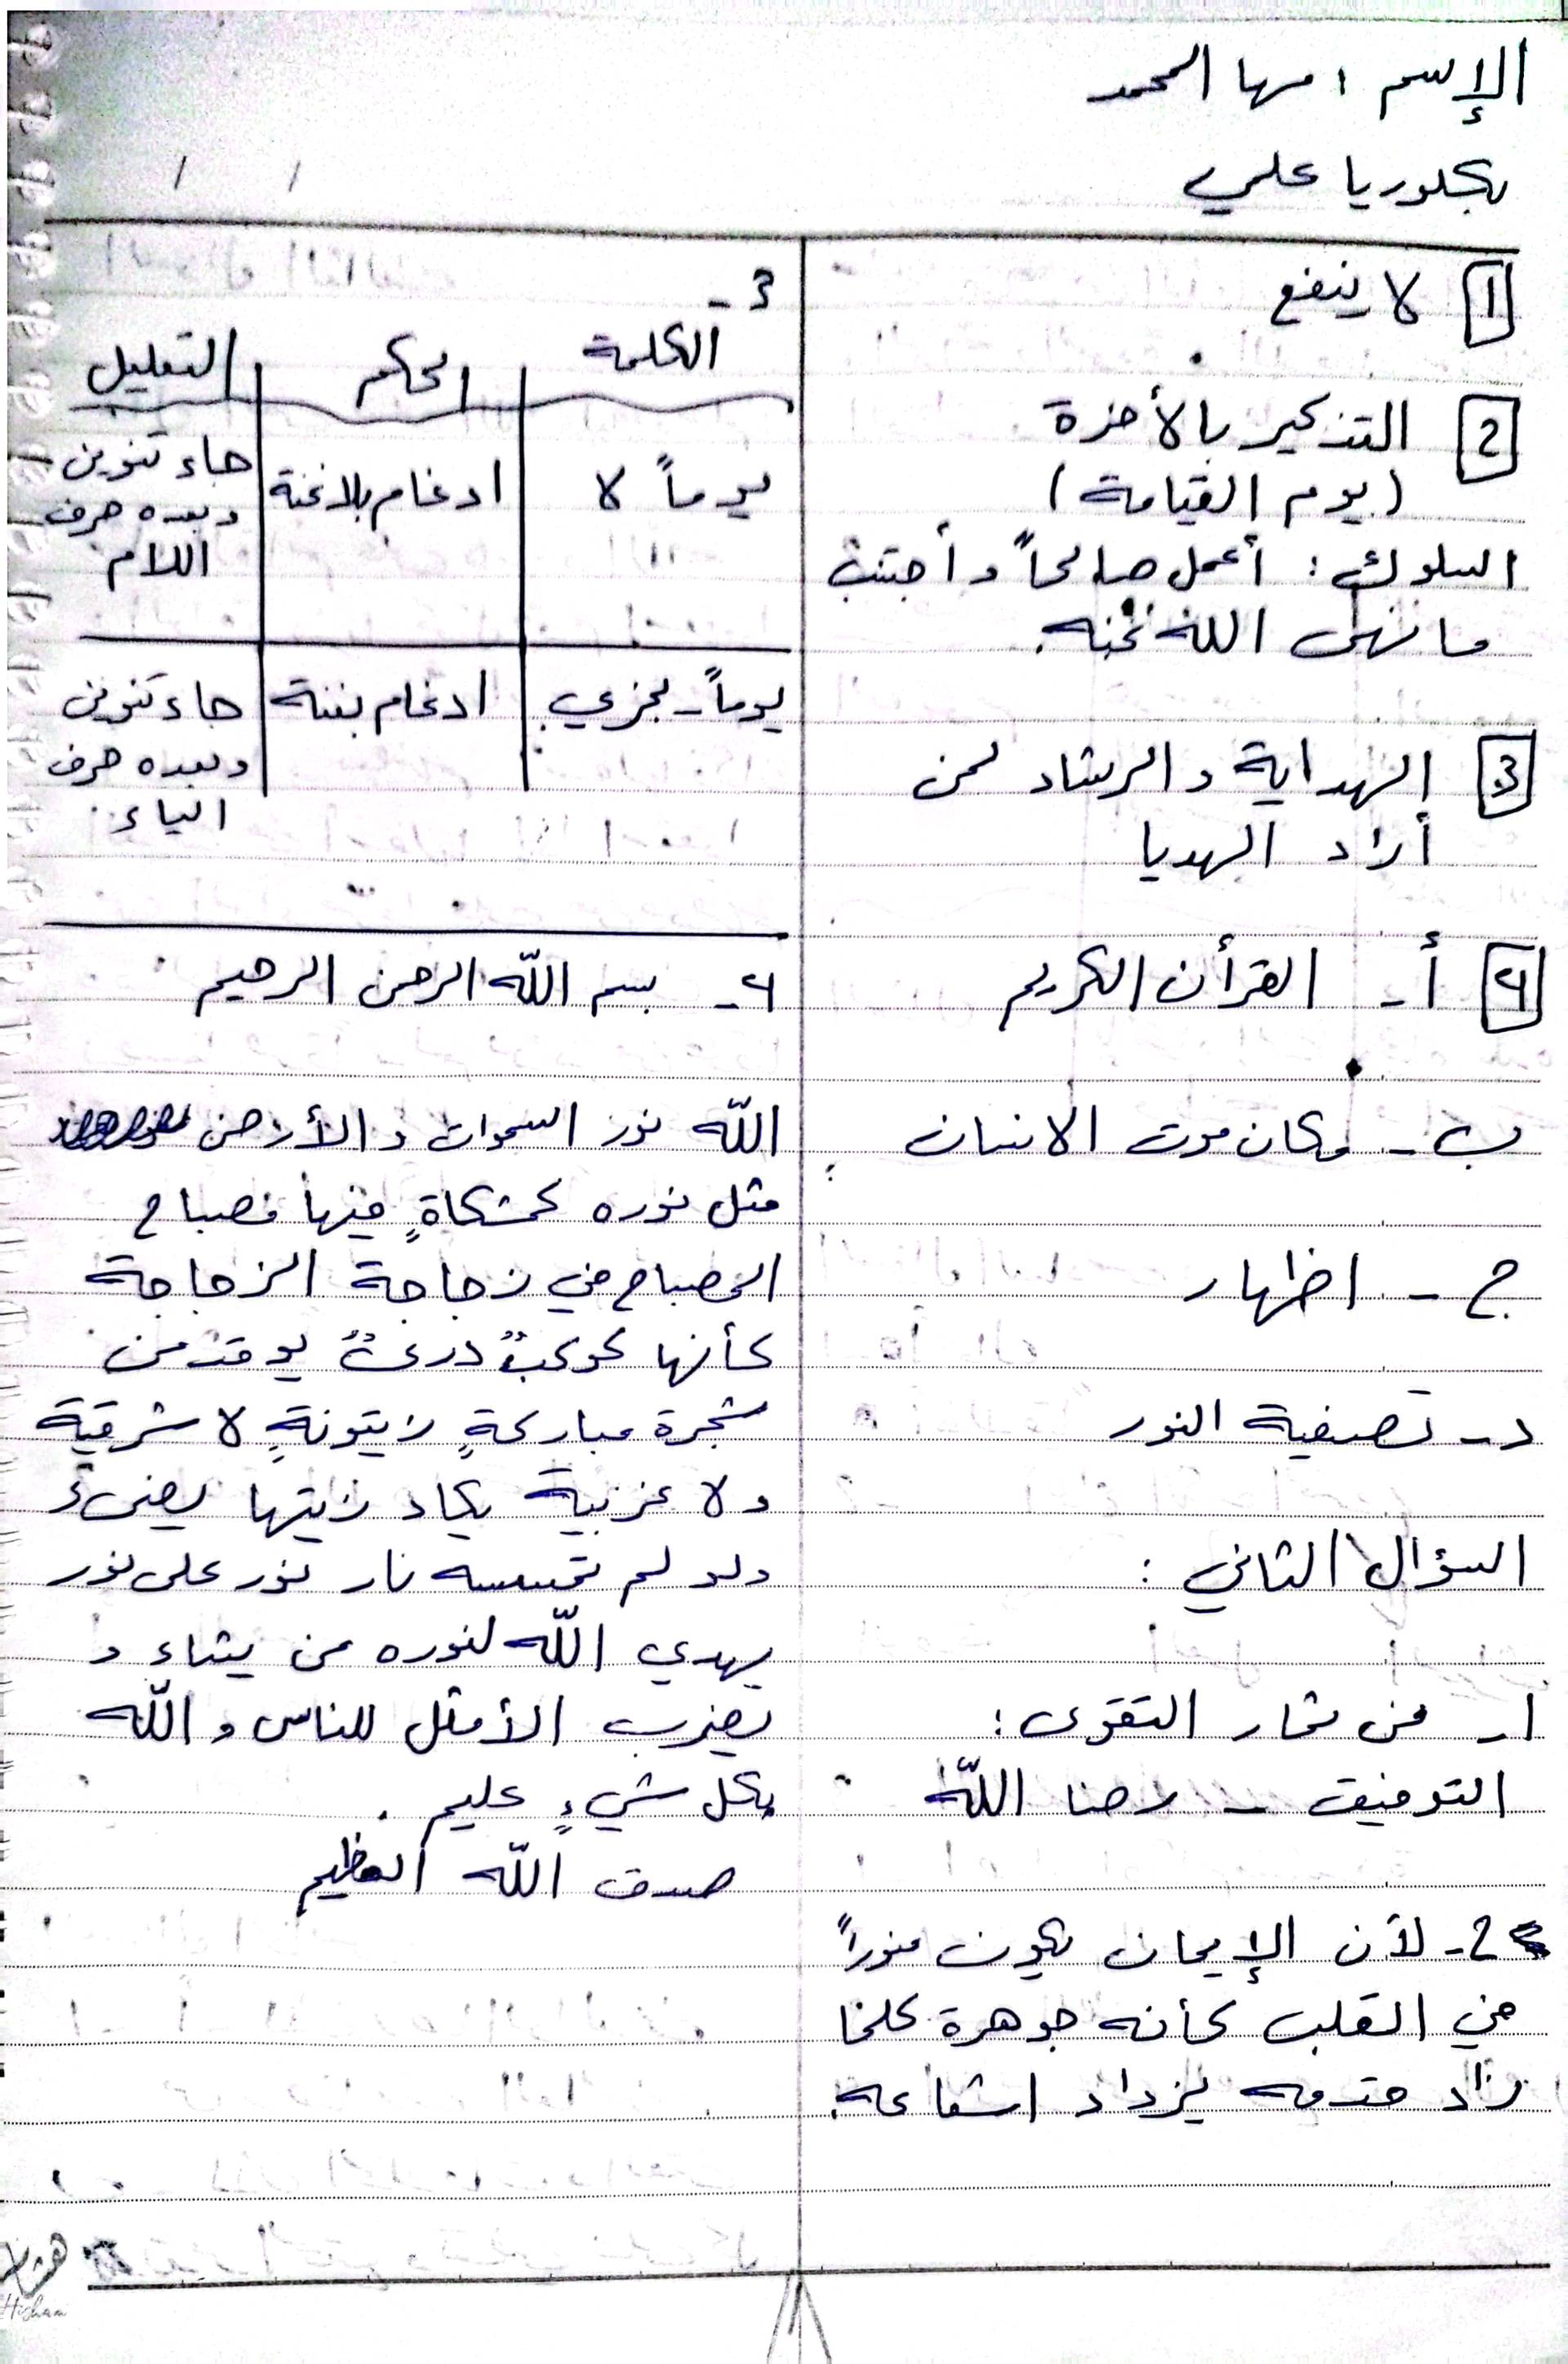 الإسم : مها المحمد
بكلوريا علمي
1 لا ينفع
2 التذكير بالأخرة
(يوم القيامة)
السلوك : أعمل صالحاً و أجتنب
ما نهى الله عنه.
3 الهداية و الرشاد لمن
أراد الهديا
4 أ - القرأن الكريم
ب - مكان موت الانسان
ج - اظهار
د - تصفية النور
السؤال الثاني :
1- من ثمار التقوى :
التوفيق - رضا الله
2- لأن الإيمان يكون منوراً
في القلب كأنه جوهرة كلما
زاد يزداد اشعاعه.
3-
الكلمة الحكم التعليل
يوماً لا ادغام بلا غنة جاء تنوين
وبعده حرف
اللام
يوماً - يجزي ادغام بغنة جاء تنوين
وبعده حرف
الياء.
4- بسم الله الرحمن الرحيم
الله نور السموات و الأرض
مثل نوره كمشكاةٍ فيها مصباح
المصباح في زجاجة الزجاجة
كأنها كوكبٌ دريٌ يوقد من
شجرة مباركةٍ زيتونةٍ لا شرقية
ولا غربية يكاد زيتها يضيءُ
ولو لم تمسسه نار نور على نور
يهدي الله لنوره من يشاء و
يضرب الأمثل للناس و الله
بكل شيءٍ عليم.
صدق الله العظيم
هشام
Hisham